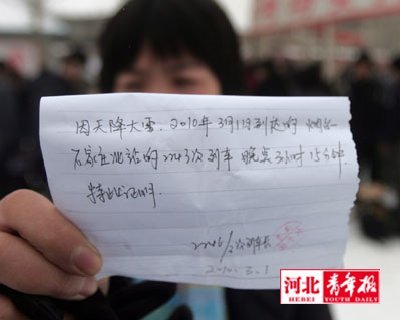 因天降大雪，2010年3月1日到达的 烟台—
石家庄北站的 2143次列车 晚点3小时15分钟
特此证明.
次列车长
2010.3.1
河北 青年报
HEBEI YOUTH DAILY